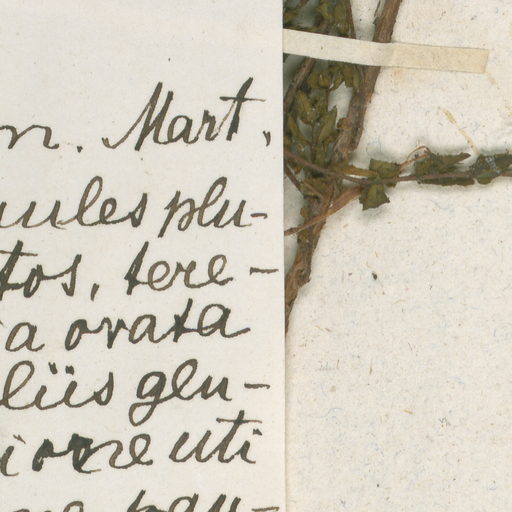 m. Mart.
aules plu-
tos, tere-
ia ovata
liis glu-
ione uti